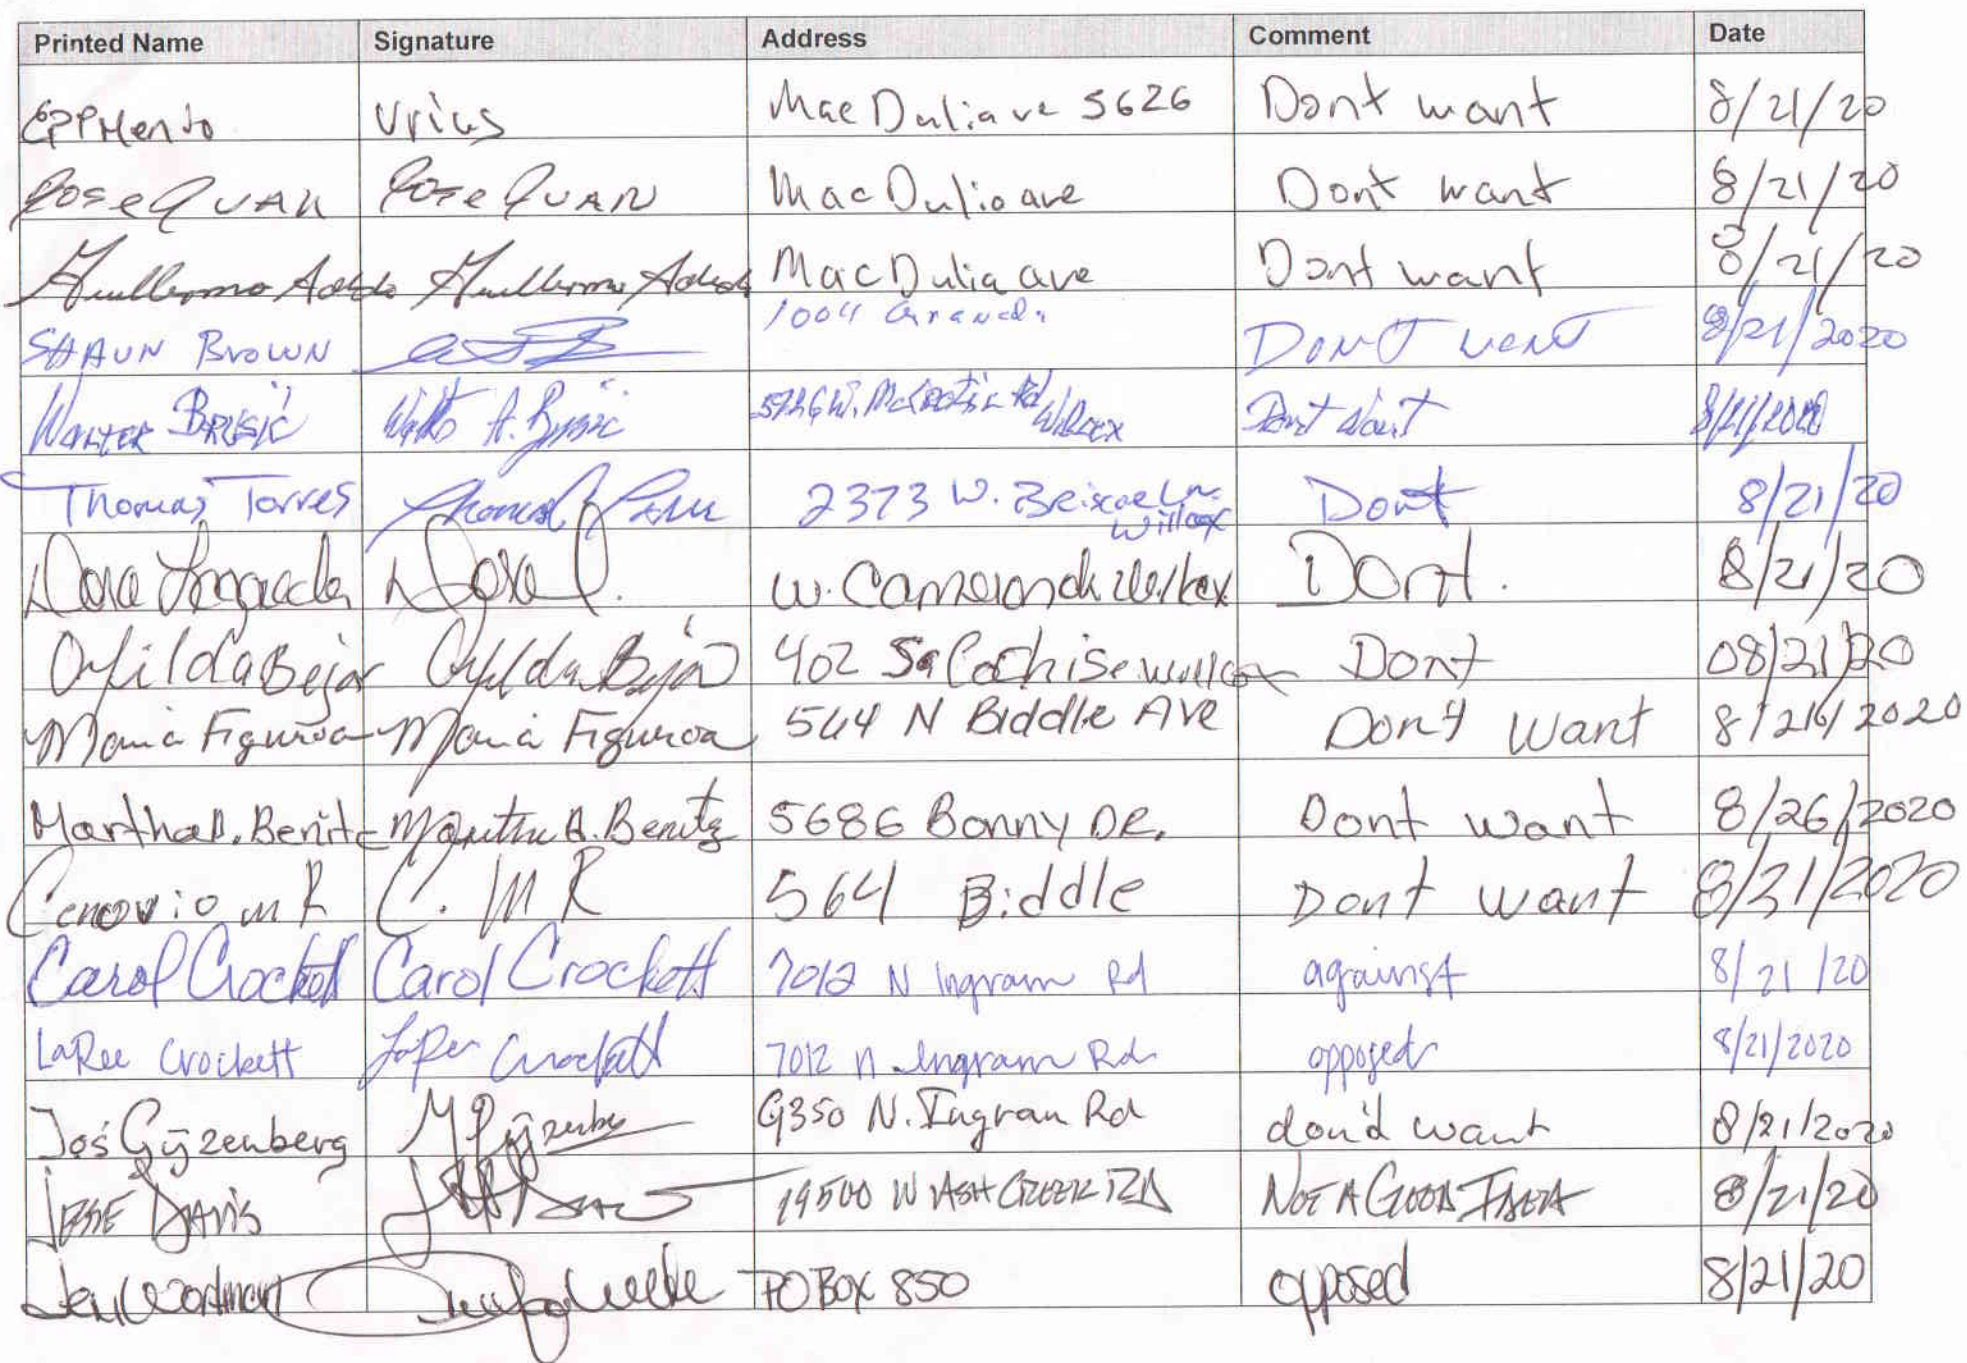 Printed Name Signature Address Comment Date
Urius MacDulia ve 5626 Dont want 8/21/20
Jose QUAN Jose QUAN MacDulio ave Dont want 8/21/20
Guillermo Guillermo MacDulia ave Dont want 8/21/20
SHAUN BROWN 1004 Dont want 8/21/2020
WALTER BRUSIC A. Brusic Willcox Dont Want 8/21/2020
Thomas Torres 2373 W. Willcox Dont 8/21/20
W. Dont. 8/21/20
Ofilda Bejar Ofilda Bejar 402 Cochise Willcox Dont 08/21/20
Maria Figueroa Maria Figueroa 564 N Biddle AVE Dont Want 2020
Martha B. Benitz Martha B. Benitz 5686 Bonny DR. Dont want 8/26/2020
Cenovio m R C. M R 564 Biddle Dont want 8/21/2020
Carol Crockett Carol Crockett 7012 N Ingram Rd against 8/21/20
LaRee Crockett LaRee Crockett 7012 N Ingram Rd opposed 8/21/2020
Jos Gijzenberg N. Ingran Rd don'd want 8/21/2020
JESSE DAVIS 19500 W ASH CREEK RD NOT A GOOD IDEA 8/21/20
PO BOX 850 opposed 8/21/20